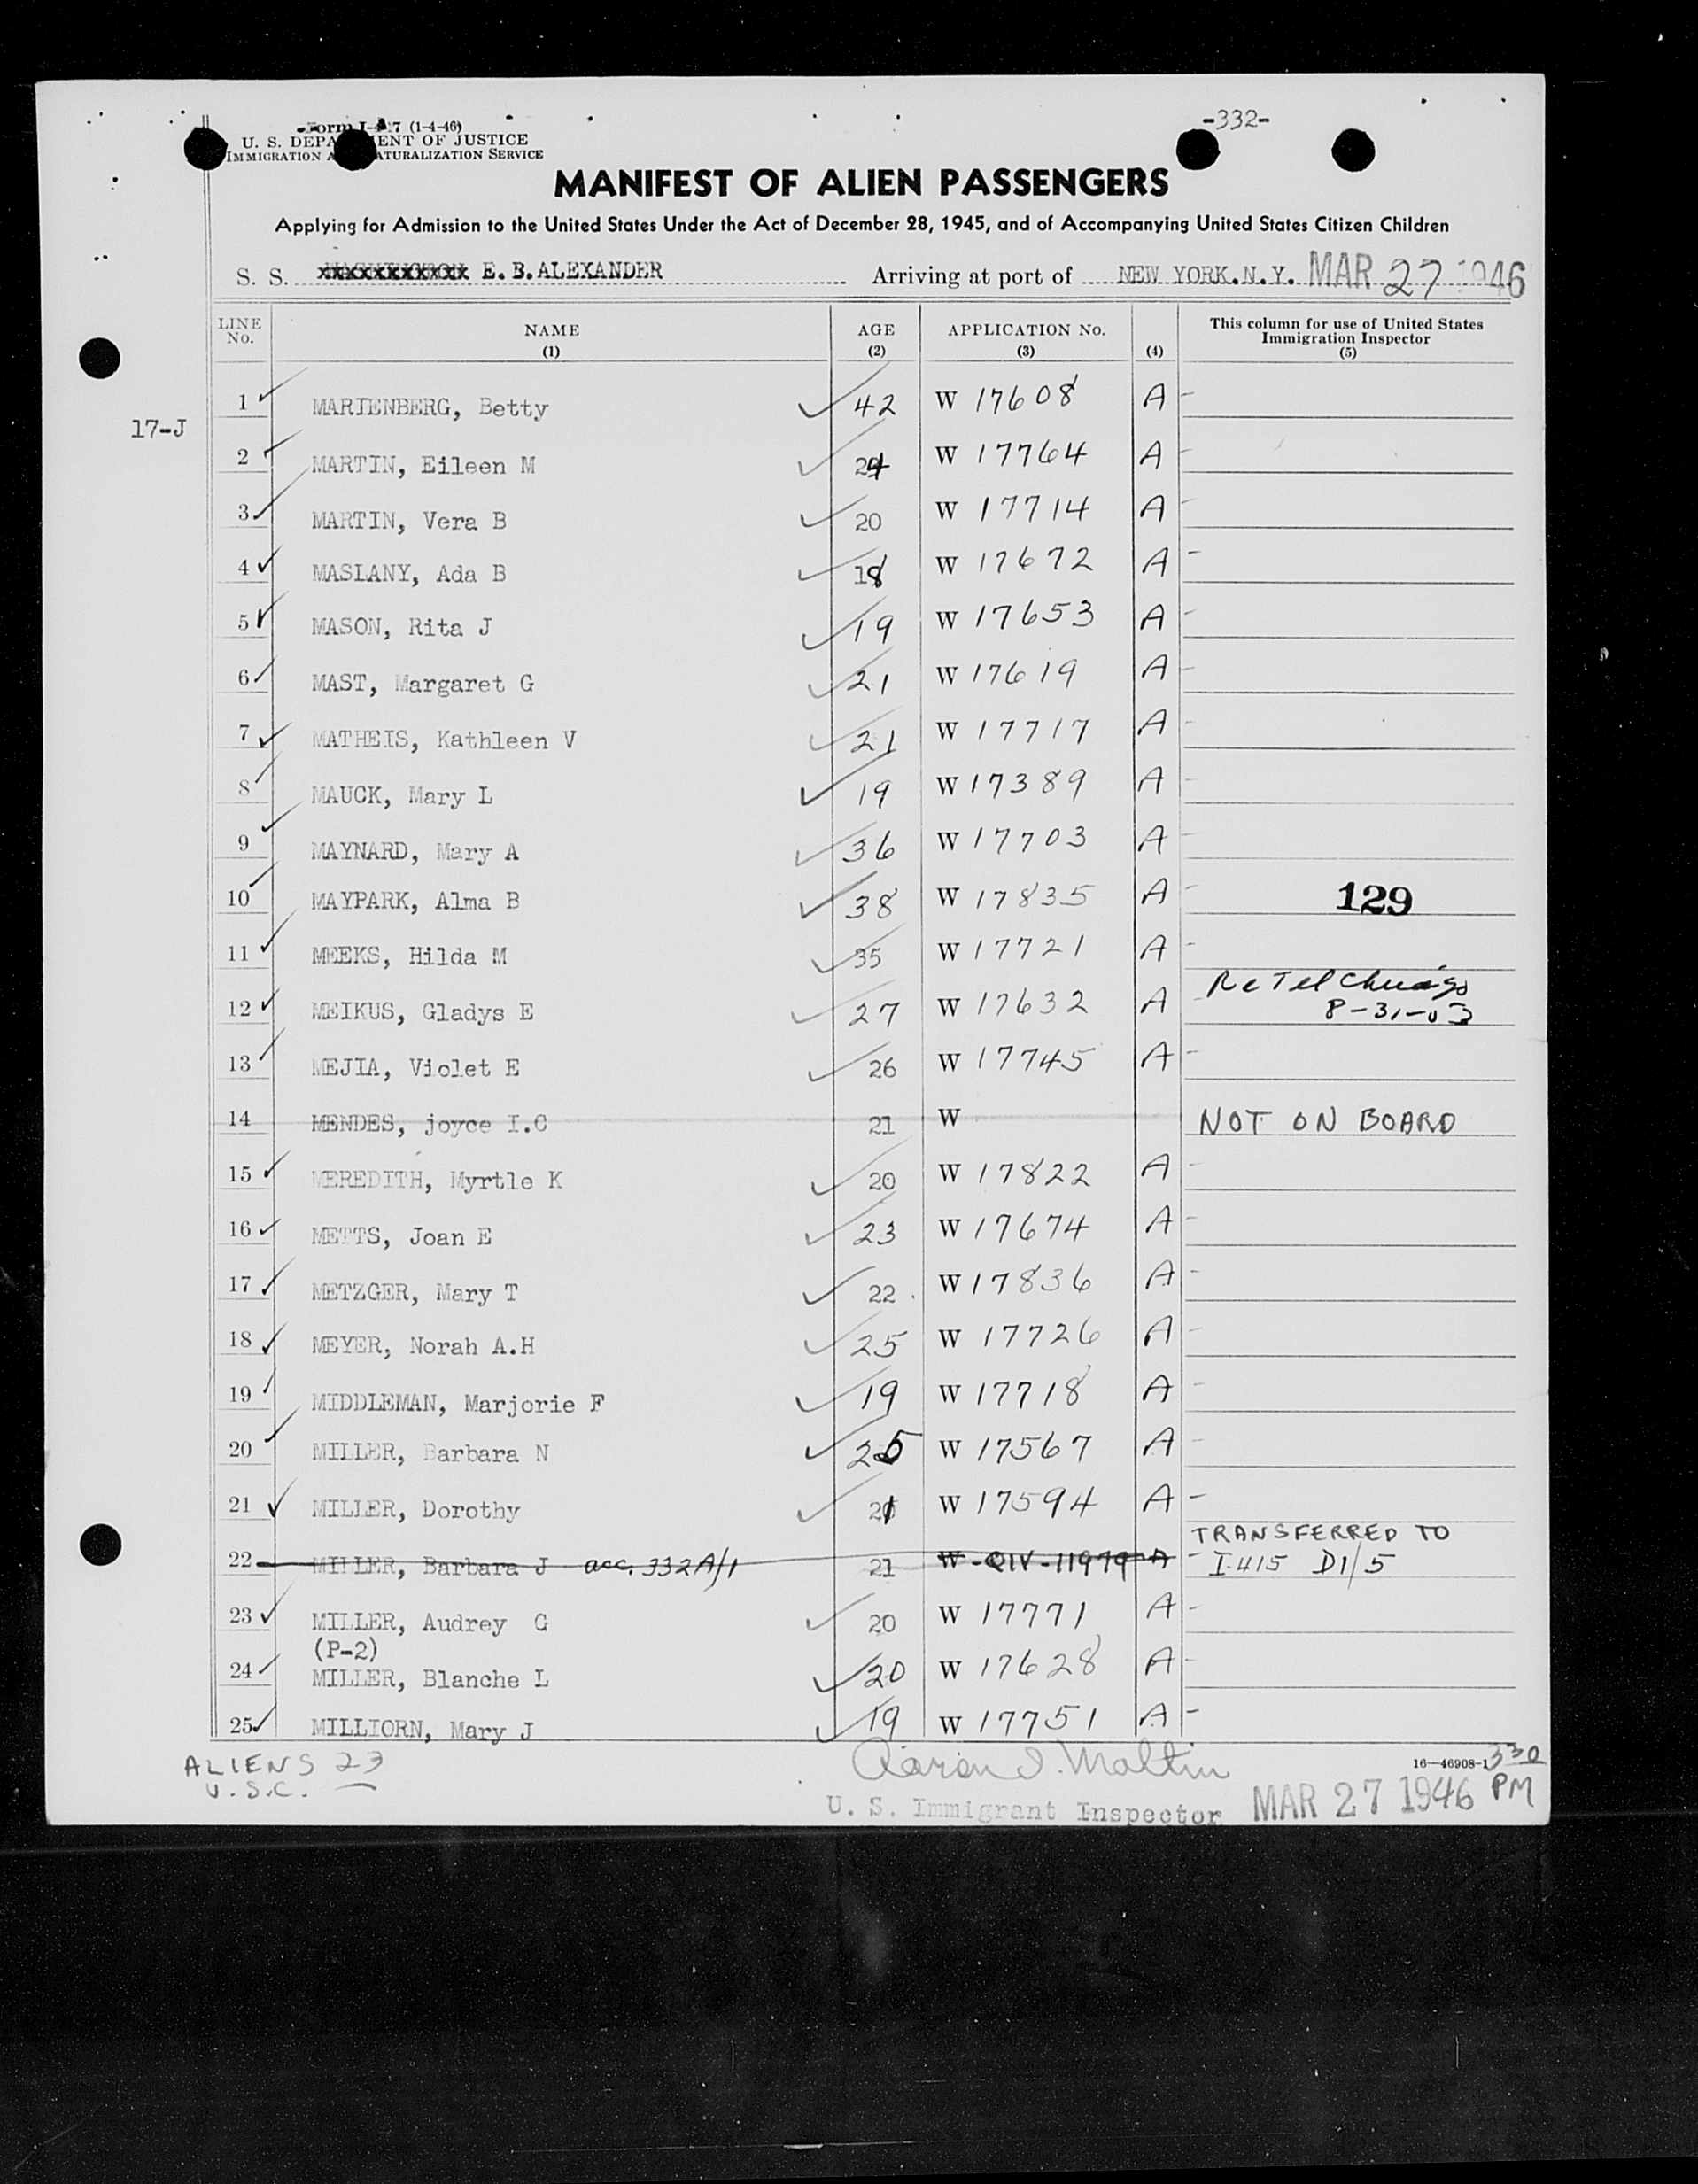 -332-
Form I-417 (1-4-46)
U. S. DEPARTMENT OF JUSTICE
IMMIGRATION AND NATURALIZATION SERVICE
MANIFEST OF ALIEN PASSENGERS
Applying for Admission to the United States Under the Act of December 28, 1945, and of Accompanying United States Citizen Children
S. S. E. B. ALEXANDER Arriving at port of NEW YORK. N. Y. MAR 27 1946
LINE No. NAME (1) AGE (2) APPLICATION No. (3) (4) This column for use of United States Immigration Inspector (5)
17-J
1 MARIENBERG, Betty 42 W 17608 A -
2 MARTIN, Eileen M 24 W 17764 A -
3 MARTIN, Vera B 20 W 17714 A -
4 MASLANY, Ada B 18 W 17672 A -
5 MASON, Rita J 19 W 17653 A -
6 MAST, Margaret G 21 W 17619 A -
7 MATHEIS, Kathleen V 21 W 17717 A -
8 MAUCK, Mary L 19 W 17389 A -
9 MAYNARD, Mary A 36 W 17703 A -
10 MAYPARK, Alma B 38 W 17835 A - 129
11 MEEKS, Hilda M 35 W 17721 A -
12 MEIKUS, Gladys E 27 W 17632 A - Re Tel Chicago 8-31-53
13 MEJIA, Violet E 26 W 17745 A -
14 MENDES, joyce I.C 21 W NOT ON BOARD
15 MEREDITH, Myrtle K 20 W 17822 A -
16 METTS, Joan E 23 W 17674 A -
17 METZGER, Mary T 22 W 17836 A -
18 MEYER, Norah A.H 25 W 17726 A -
19 MIDDLEMAN, Marjorie F 19 W 17718 A -
20 MILLER, Barbara N 25 W 17567 A -
21 MILLER, Dorothy 21 W 17594 A -
22 MILLER, Barbara J acc. 332A/1 21 W-QIV-11979 A - TRANSFERRED TO I-415 D1/5
23 MILLER, Audrey G 20 W 17771 A -
(P-2)
24 MILLER, Blanche L 20 W 17628 A -
25 MILLIORN, Mary J 19 W 17751 A -
ALIENS 23
U.S.C. —
Aaron I. Maltin
U. S. Immigrant Inspector
16—46908-1
MAR 27 1946
330 PM